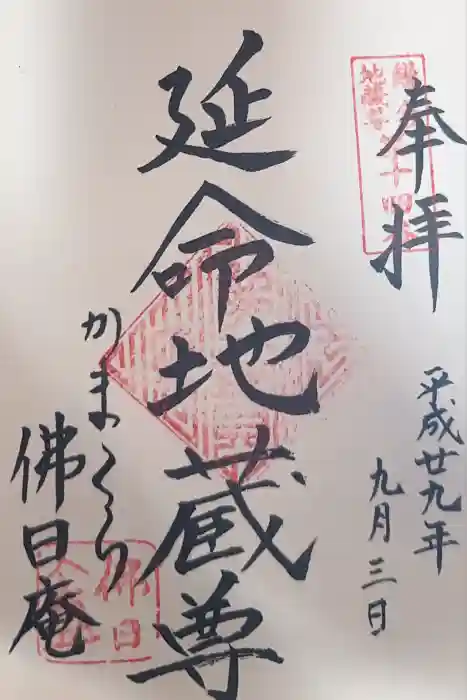 奉拝
平成廿九年
九月三日
延命地蔵尊
かまくら
佛日庵